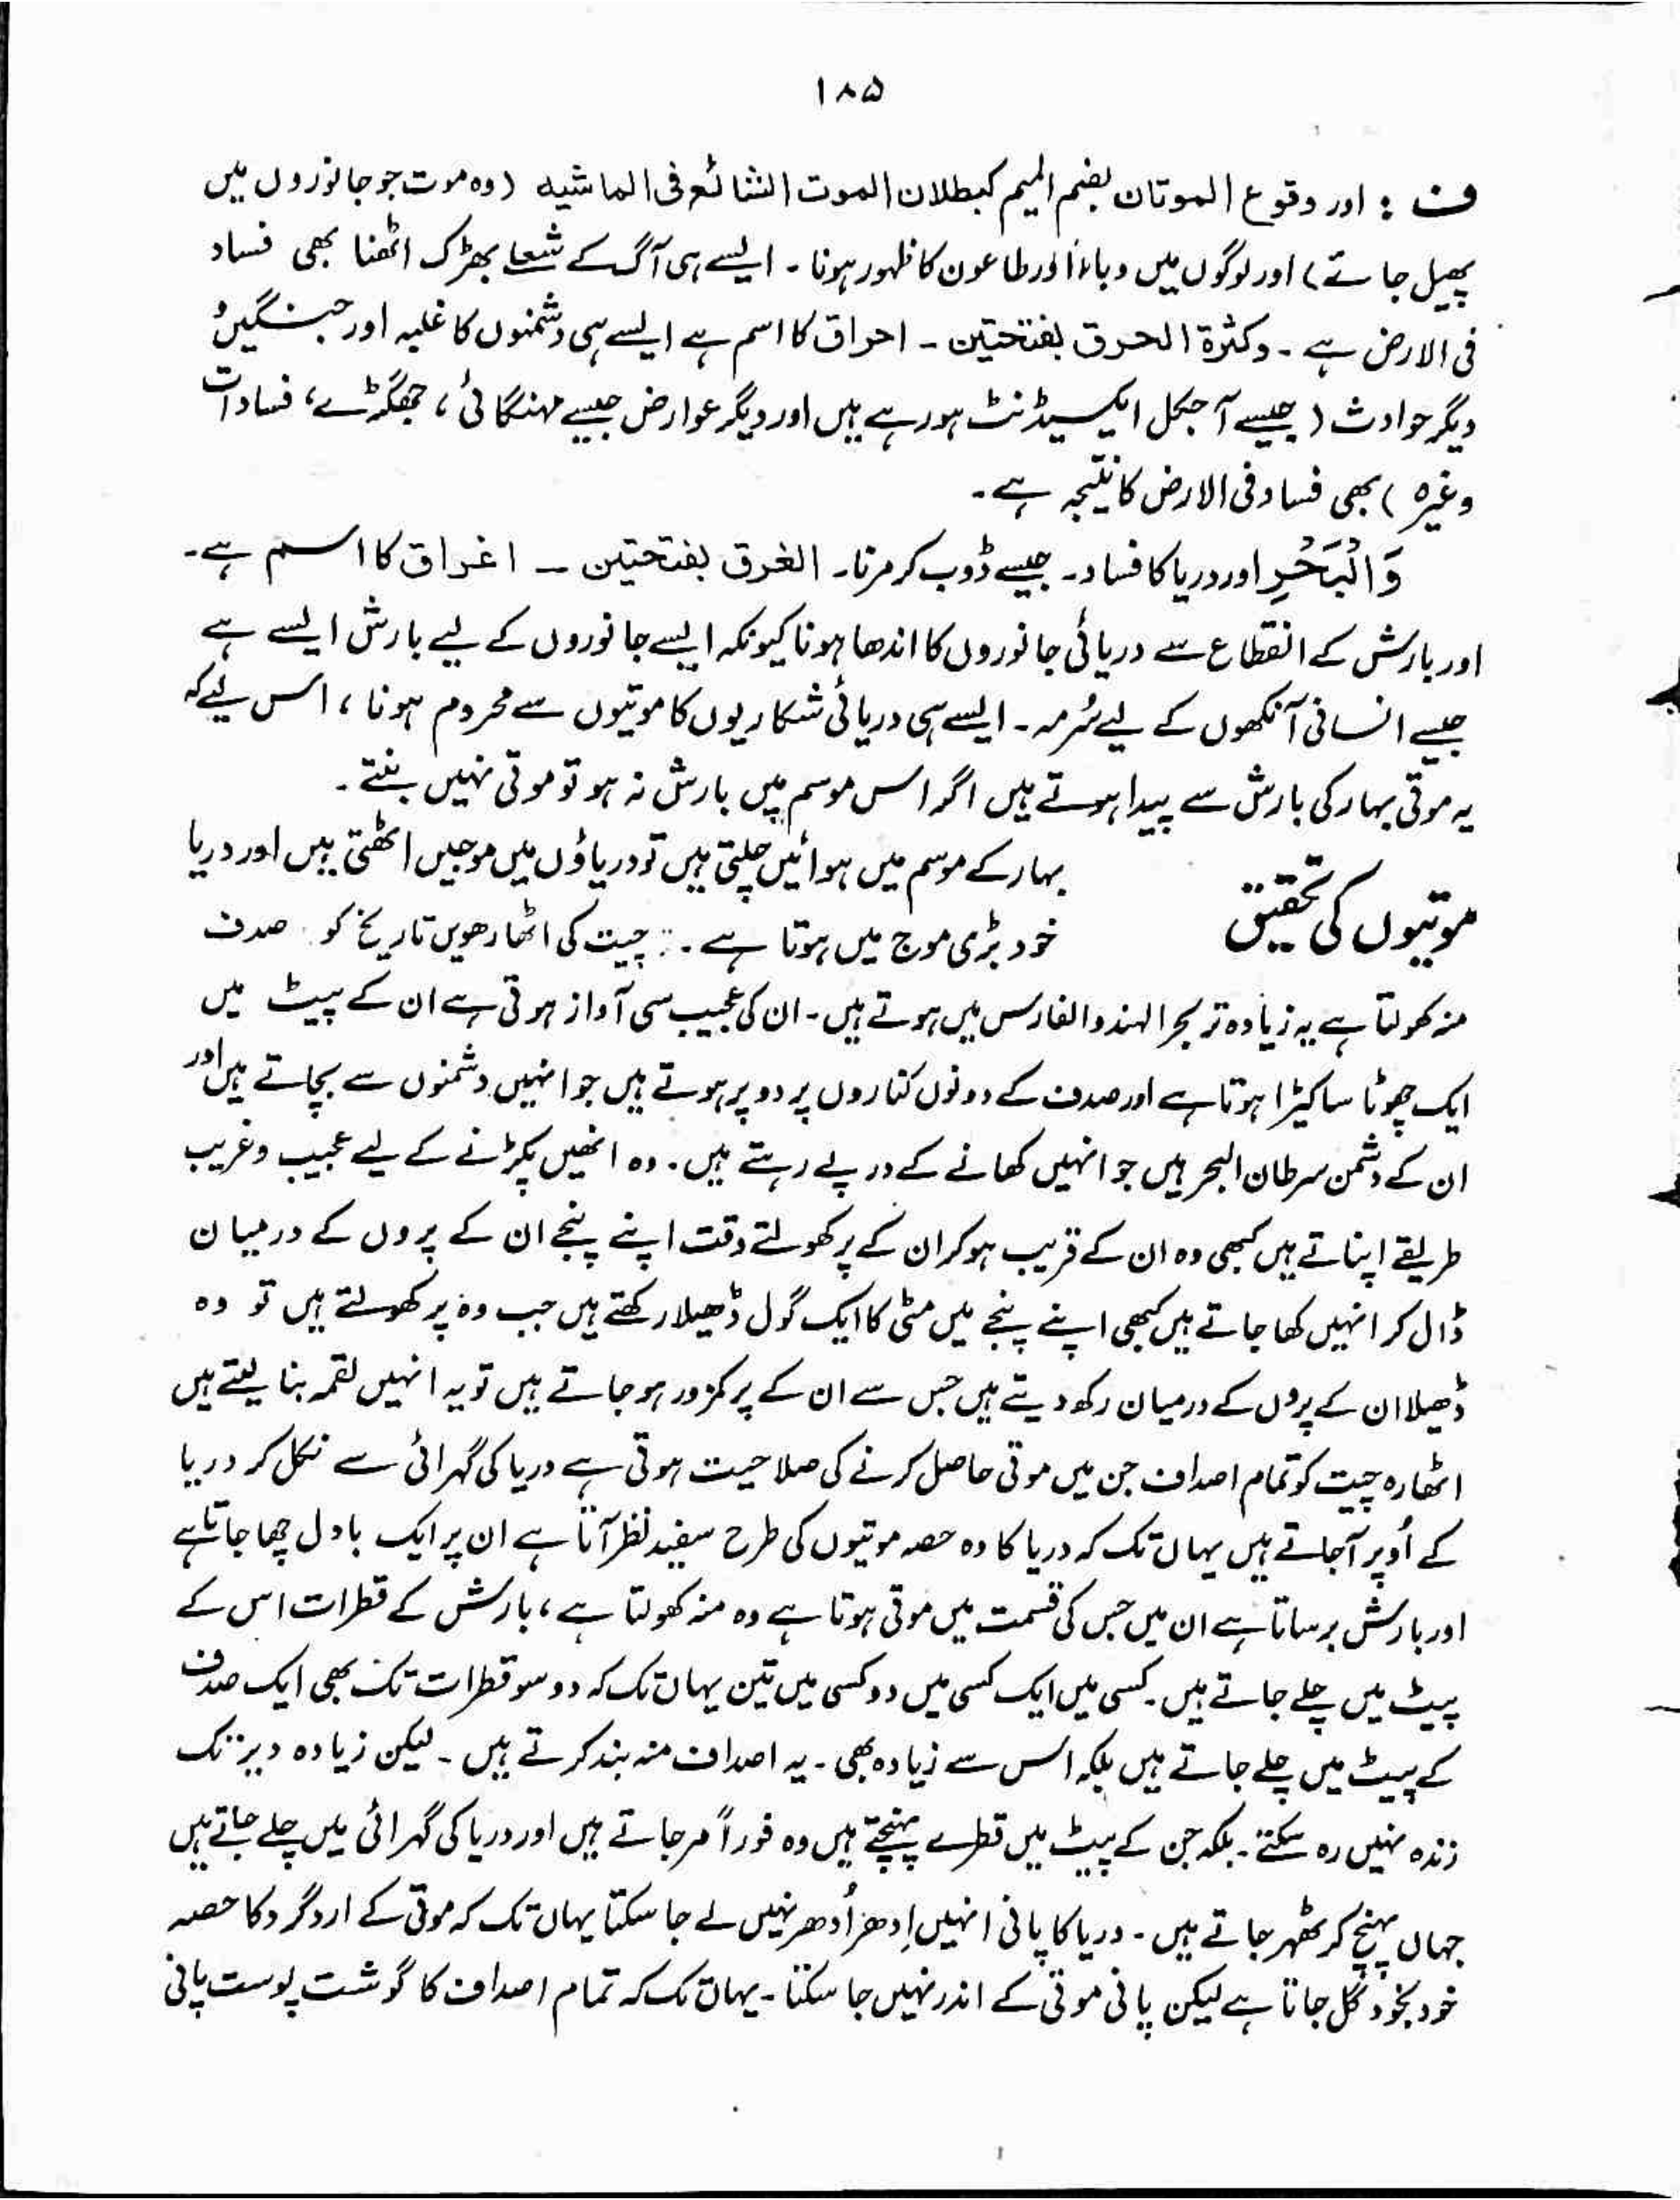 ۱۸۵
ف : اور وقوع الموتان بضم المیم کبطلان الموت الشائع فی الماشیه (وہ موت جو جانوروں میں
پھیل جائے) اور لوگوں میں وباء اور طاعون کا ظہور ہونا ۔ ایسے ہی آگ کے شعلے بھڑک اٹھنا بھی فساد
فی الارض ہے ۔ وکثرۃ الحرق بفتحتین ۔ احراق کا اسم ہے ایسے ہی دشمنوں کا غلبہ اور جنگیں و
دیگر حوادث (جیسے آجکل ایکسیڈنٹ ہو رہے ہیں اور دیگر عوارض جیسے مہنگائی، جھگڑے، فسادات
وغیرہ) بھی فساد فی الارض کا نتیجہ ہے ۔
وَالْبَحْرِ اور دریا کا فساد ۔ جیسے ڈوب کر مرنا ۔ الغرق بفتحتین ۔ اغراق کا اسم ہے ۔
اور بارش کے انقطاع سے دریائی جانوروں کا اندھا ہونا کیونکہ ایسے جانوروں کے لیے بارش ایسے ہے
جیسے انسانی آنکھوں کے لیے سُرمہ ۔ ایسے ہی دریائی شکاریوں کا موتیوں سے محروم ہونا ، اس لیے کہ
یہ موتی بہار کی بارش سے پیدا ہوتے ہیں اگر اس موسم میں بارش نہ ہو تو موتی نہیں بنتے ۔
موتیوں کی تحقیق
بہار کے موسم میں ہوائیں چلتی ہیں تو دریاؤں میں موجیں اٹھتی ہیں اور دریا
خود بڑی موج میں ہوتا ہے ۔ چیت کی اٹھارھویں تاریخ کو صدف
منہ کھولتا ہے یہ زیادہ تر بحر الہند والفارس میں ہوتے ہیں ۔ ان کی عجیب سی آواز ہوتی ہے ان کے پیٹ میں
ایک چھوٹا سا کیڑا ہوتا ہے اور صدف کے دونوں کناروں پر دو پر ہوتے ہیں جو انہیں دشمنوں سے بچاتے ہیں اور
ان کے دشمن سرطان البحر ہیں جو انہیں کھانے کے درپے رہتے ہیں ۔ وہ انھیں پکڑنے کے لیے عجیب و غریب
طریقے اپناتے ہیں کبھی وہ ان کے قریب ہو کر ان کے پر کھولتے وقت اپنے پنجے ان کے پروں کے درمیان
ڈال کر انہیں کھا جاتے ہیں کبھی اپنے پنجے میں مٹی کا ایک گول ڈھیلا رکھتے ہیں جب وہ پر کھولتے ہیں تو وہ
ڈھیلا ان کے پروں کے درمیان رکھ دیتے ہیں جس سے ان کے پر کمزور ہو جاتے ہیں تو یہ انہیں لقمہ بنا لیتے ہیں
اٹھارہ چیت کو تمام اصداف جن میں موتی حاصل کرنے کی صلاحیت ہوتی ہے دریا کی گہرائی سے نکل کر دریا
کے اُوپر آجاتے ہیں یہاں تک کہ دریا کا وہ حصہ موتیوں کی طرح سفید نظر آتا ہے ان پر ایک بادل چھا جاتا ہے
اور بارش برساتا ہے ان میں جس کی قسمت میں موتی ہوتا ہے وہ منہ کھولتا ہے ، بارش کے قطرات اس کے
پیٹ میں چلے جاتے ہیں ۔ کسی میں ایک کسی میں دو کسی میں تین یہاں تک کہ دو سو قطرات تک بھی ایک صدف
کے پیٹ میں چلے جاتے ہیں بلکہ اس سے زیادہ بھی ۔ یہ اصداف منہ بند کرتے ہیں ۔ لیکن زیادہ دیر تک
زندہ نہیں رہ سکتے ۔ بلکہ جن کے پیٹ میں قطرے پہنچتے ہیں وہ فوراً مرجاتے ہیں اور دریا کی گہرائی میں چلے جاتے ہیں
جہاں پہنچ کر ٹھہر جاتے ہیں ۔ دریا کا پانی انہیں اِدھر اُدھر نہیں لے جا سکتا یہاں تک کہ موتی کے اردگرد کا حصہ
خود بخود گل جاتا ہے لیکن پانی موتی کے اندر نہیں جا سکتا ۔ یہاں تک کہ تمام اصداف کا گوشت پوست پانی